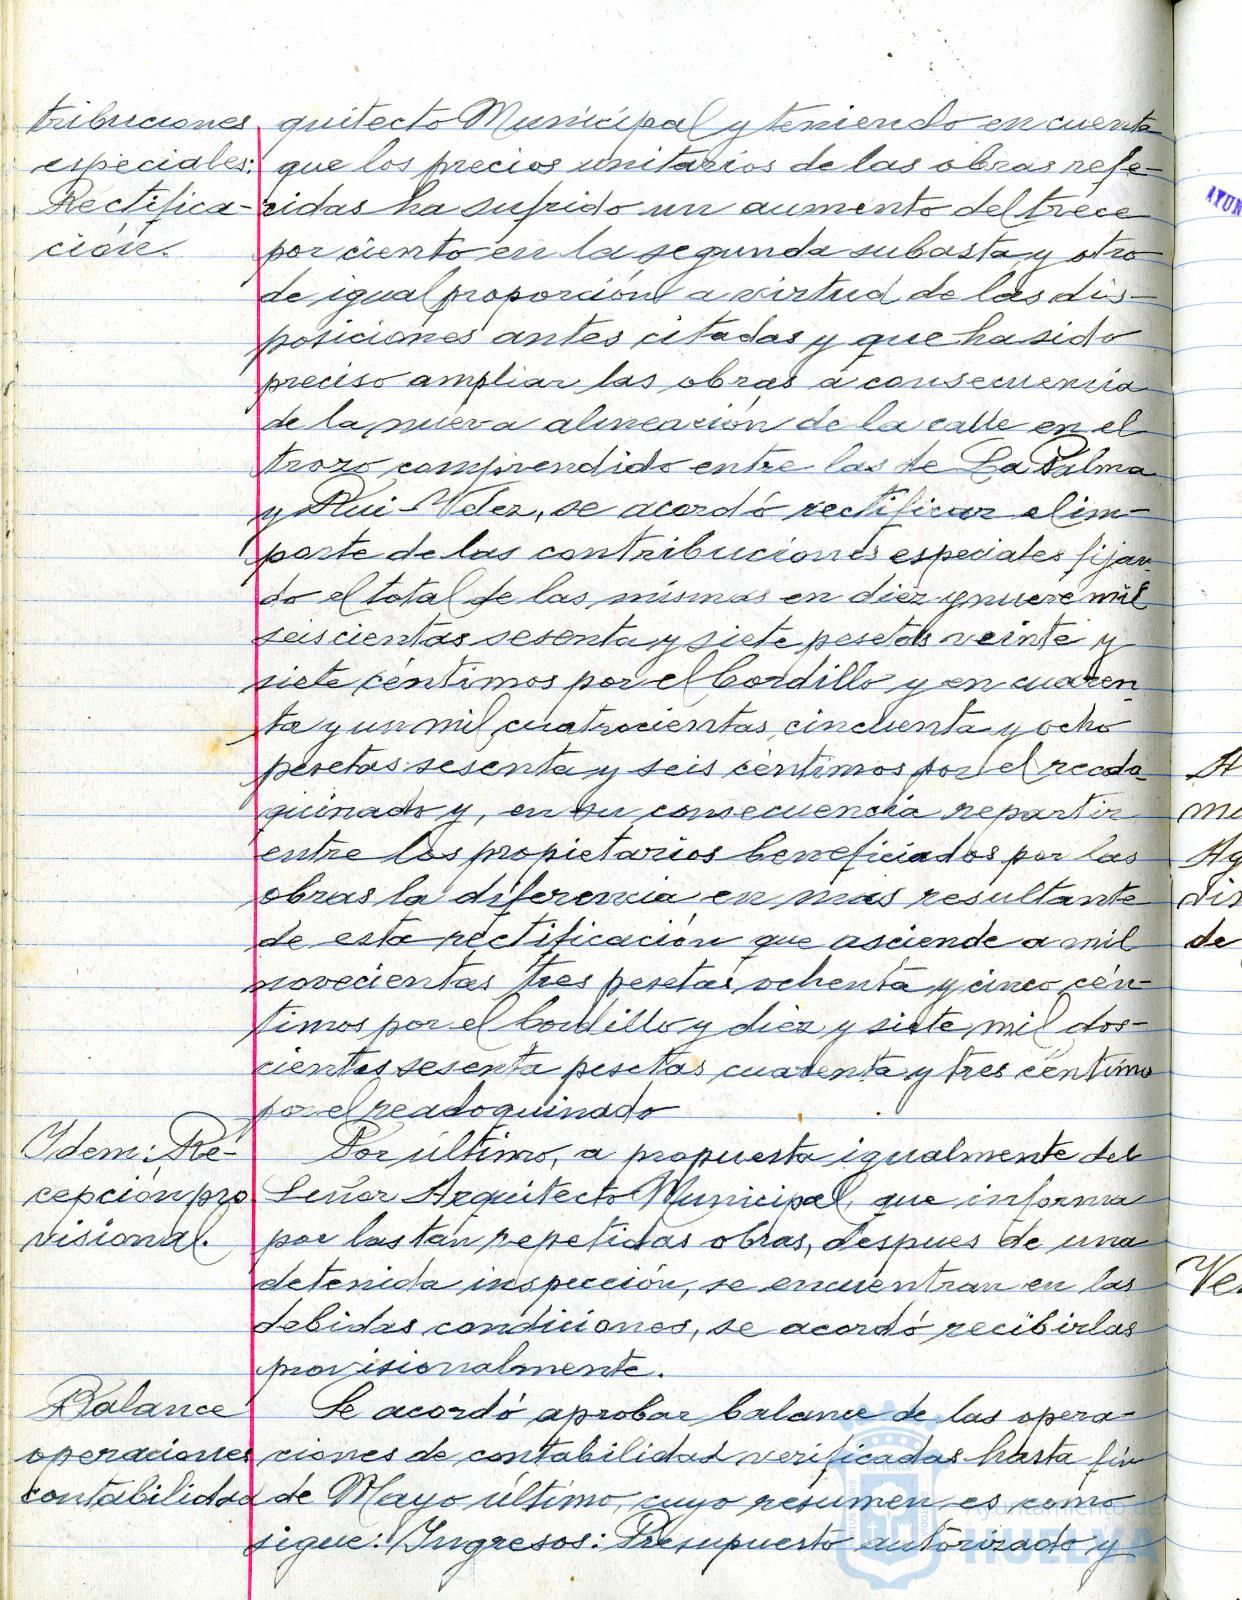 tribuciones
especiales:
Rectifica-
ción.
quitecto Municipal y teniendo en cuenta
que los precios unitarios de las obras refe-
ridas ha sufrido un aumento del trece
por ciento en la segunda subasta y otro
de igual proporción a virtud de las dis-
posiciones antes citadas y que ha sido
preciso ampliar las obras a consecuencia
de la nueva alineación de la calle en el
trozo comprendido entre las de La Palma
y Rui-Velez, se acordó rectificar el im-
porte de las contribuciones especiales fijan-
do el total de las mismas en diez y nueve mil
seiscientas sesenta y siete pesetas veinte y
siete céntimos por el bordillo y en cuaren
ta y un mil cuatrocientas cincuenta y ocho
pesetas sesenta y seis céntimos por el reado
quinado y, en su consecuencia repartir
entre los propietarios beneficiados por las
obras la diferencia en mas resultante
de esta rectificación que asciende a mil
novecientas tres pesetas ochenta y cinco cén-
timos por el bordillo y diez y siete mil dos-
cientas sesenta pesetas cuarenta y tres céntimo
por el readoquinado
Idem: Re-
cepción pro
visional.
Por último, a propuesta igualmente del
Señor Arquitecto Municipal, que informa
por las tan repetidas obras, despues de una
detenida inspección, se encuentran en las
debidas condiciones, se acordó recibirlas
provisionalmente.
Balance
operaciones
contabilidad
Se acordó aprobar balance de las opera-
ciones de contabilidad verificadas hasta fin
de Mayo último, cuyo resumen es como
sigue: Ingresos: Presupuesto autorizado y
AYUN
A
mu
Ag
dis
de
Ve
Ayuntamiento de
HUELVA